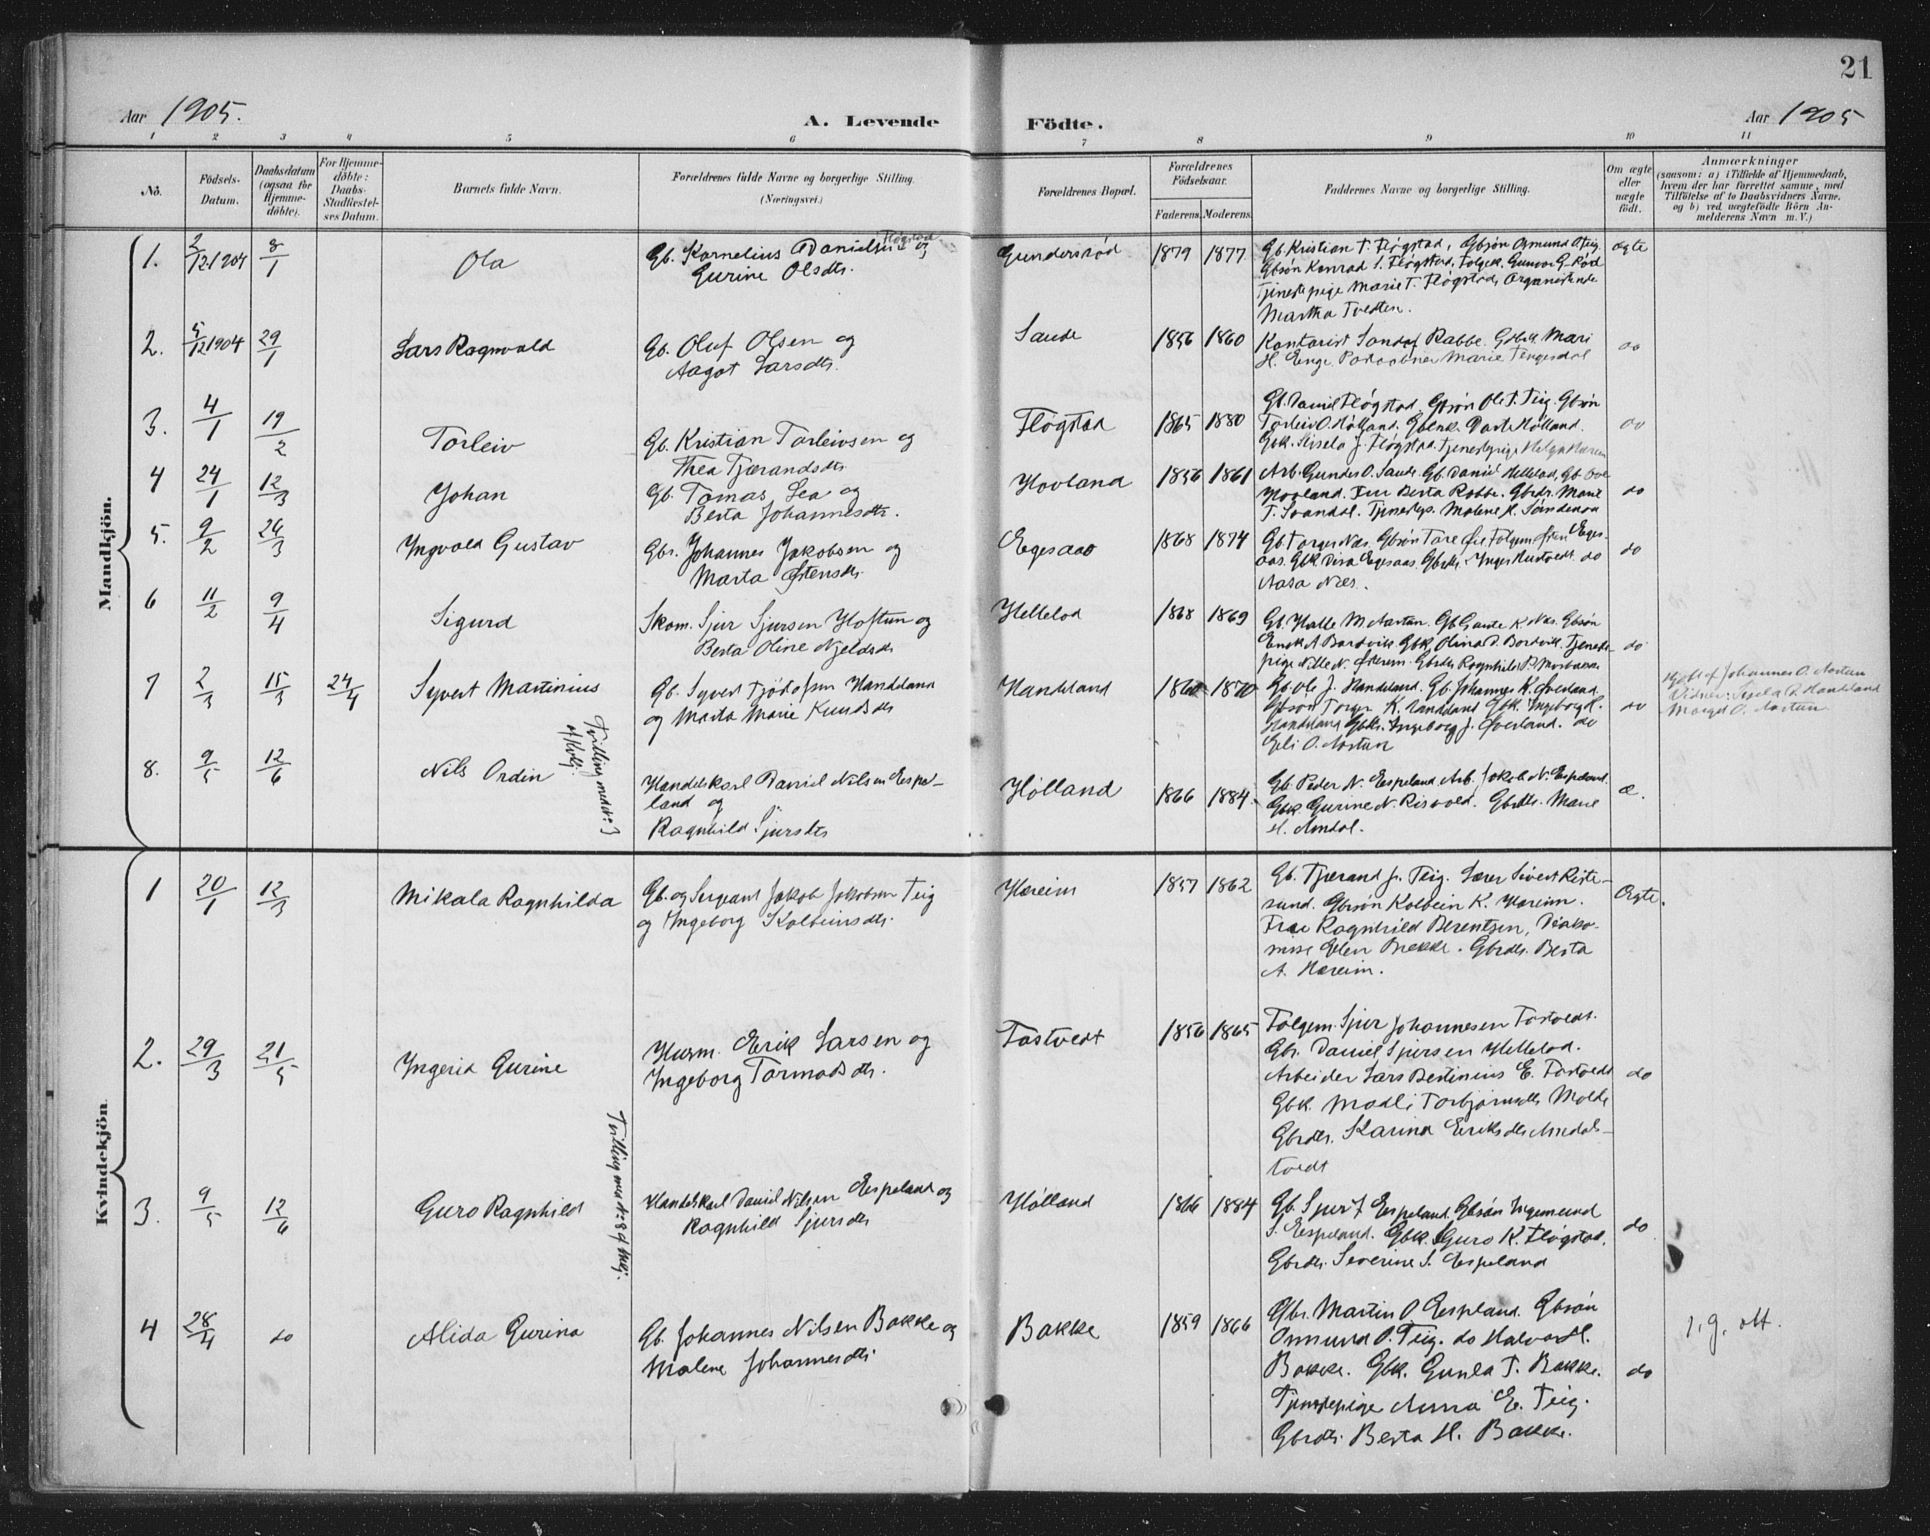 21
Aar 1905.
A. Levende Födte.
Aar 1905
1 2 3 4 5 6 7 8 9 10 11
No.
Födsels-Datum.
Daabsdatum (ogsaa for Hjemme-döbte).
For Hjemme-döbte: Daabs-Stadfæstel-ses Datum.
Barnets fulde Navn.
Forældrenes fulde Navne og borgerlige Stilling. (Næringsvei.)
Forældrenes Bopæl.
Forældrenes Födselsaar.
Faderens. Moderens.
Faddernes Navne og borgerlige Stilling.
Om ægte eller uægte födt.
Anmærkninger
(saasom: a) i Tilfælde af Hjemmedaab,
hvem der har forrettet samme, med
Tilföielse af to Daabsvidners Navne,
og b) ved uægtefödte Börn An-
melderens Navn m. V.)
Mandkjön.
1. 2/12 1904 8/1 Ola
Gb. Kornelius Danielsen Fløgstad og
Gurine Olsdtr.
Gundersrød 1879 1877
Gb. Kristian T. Fløgstad, Gbsøn Osmund O. Teig.
Gbsøn Konrad S. Fløgstad. Folgek. Gunvor G. Rød
Tjenestepige Marie T. Fløgstad, Organist
Martha Tvedten.
ægte
2. 5/12 1904 29/1 Lars Ragnvald
Gb. Oluf Olsen og
Aagot Larsdtr.
Saude 1856 1860
Kontorist Rabbe. Gbk. Mari
H. Enge Marie Tengesdal
do
3. 4/1 19/2 Torleiv
Gb. Kristian Torleivsen og
Thea Tjærandsdtr
Fløgstad 1865 1880
Gb. Daniel Fløgstad, Gbsøn Ole T. Teig. Gbsøn
Torleiv O. Hølland. Hølland.
Gbk. Sissela J. Fløgstad. Tjenestepige Helga
do
4 24/1 12/3 Johan
Gb. Tomas Lea og
Berta Johannesdtr.
Hovland 1856 1861
Arb. Gunder O. Saude. Gb. Daniel Hellelod, Gb. Ove
Hovland. Fru Berta Rabbe. Gbrdtr. Marie
T. Svandal. Tjenestep. Malene H. Søndenaa
do
5. 9/2 24/3 Ingvald Gustav
Gbr. Johannes Jakobsen og
Marta Østensdtr.
Egesaas 1868 1874
Gb. Torger Næs. Gbsøn Tore Folgem. Østen Eges-
aas. Gbk. Egesaas. Gbrdtr. Inger do
Aasa Næs.
do
6 11/2 9/4 Sigurd
Skom. Sjur Sjursen Hoftun og
Berta Oline Njeldsdtr
Hellelod 1868 1869
Gb. Halle M. Aartun. Gb. Gaute K. Næs. Gbsøn
Enok A. Bardvik. Gbk. Olina P. Bardvik. Tjeneste-
pige Nille N. Gbrdtr. Ragnhild P.
do
7 2/3 15/3 24/4 Syvert Martinius
Gb. Syvert Handeland
og Marta Marie Knudsdtr
Handeland 1860 1870
Gb. Ole J. Handeland. Gb. Johannes K. Øverland.
Gbsøn Torger K. Handeland Gbk. Ingeborg K.
Handeland Gbk. Ingeborg J. Øverland. do
Eli O. Aartun
do
Hjdbt af Johannes O. Aartun
Vidner: Asela R. Handeland
Marget O. Aartun.
8. 9/5 12/6 Nils Ordin
Tvilling med Nr. 3
af Kvkj.
Handelskarl Daniel Nilsen Espe-
land og
Ragnhild Sjursdtr
Hølland 1866 1884.
Gb. Peder N. Espeland. Arb. Jakob N. Espeland.
Gbk. Gurine N. Risvold. Gbrdtr. Marie
H. Amdal.
æ.
Kvindekjön
1 20/1 12/3 Mikala Ragnhilda
Gb. og Sergeant Jakob Jakobsen Teig
og Ingeborg Kolbeinsdtr.
Hareim 1857 1862
Gb. Tjærand J. Teig. Lærer Sivert Riste-
sund. Gbrsøn Kolbein K. Hareim.
Frue Ragnhild Berentsen, Diako-
nisse Elen Brekke. Gbrdtr. Berta
A. Hareim.
Ægte.
2. 29/3 21/5 Ingerid Gurine
Husm. Eerik Larsen og
Ingeborg Tormodsdtr.
Tostvedt 1856 1865
Folgem. Sjur Johannesen Tostvedt.
Gbr. Daniel Sjursen Hellelod.
Arbeider Lars Bertinius E. Tostvedt
Gbk. Madli Torbjørnsdtr Molde
Gbrdtr. Karina Eeriksdtr Amdals-
tvedt
do
3. 9/5 12/6 Guro Ragnhild
Tvilling med Nr: 8 af Mkj.
Handelskarl Daniel Nilsen Espeland og
Ragnhild Sjursdtr
Hølland 1866 1884
Gb. Sjur T. Espeland. Gbrsøn Ingemund
S. Espeland. Gbk. Guro K. Fløgstad.
Gbrdtr. Severine S. Espeland
do
4 28/4 do Alida Gurina
Gb. Johannes Nilsen Bakke og
Malene Johannesdtr.
Bakke 1859 1866
Gbr. Martin O. Espeland. Gbrsøn
Osmund O. Teig. do Halvor H.
Bakke. Gbk. Gunla T. Bakke.
Tjenestepige Anna E. Teig.
Gbrdtr. Berta H. Bakke.
do